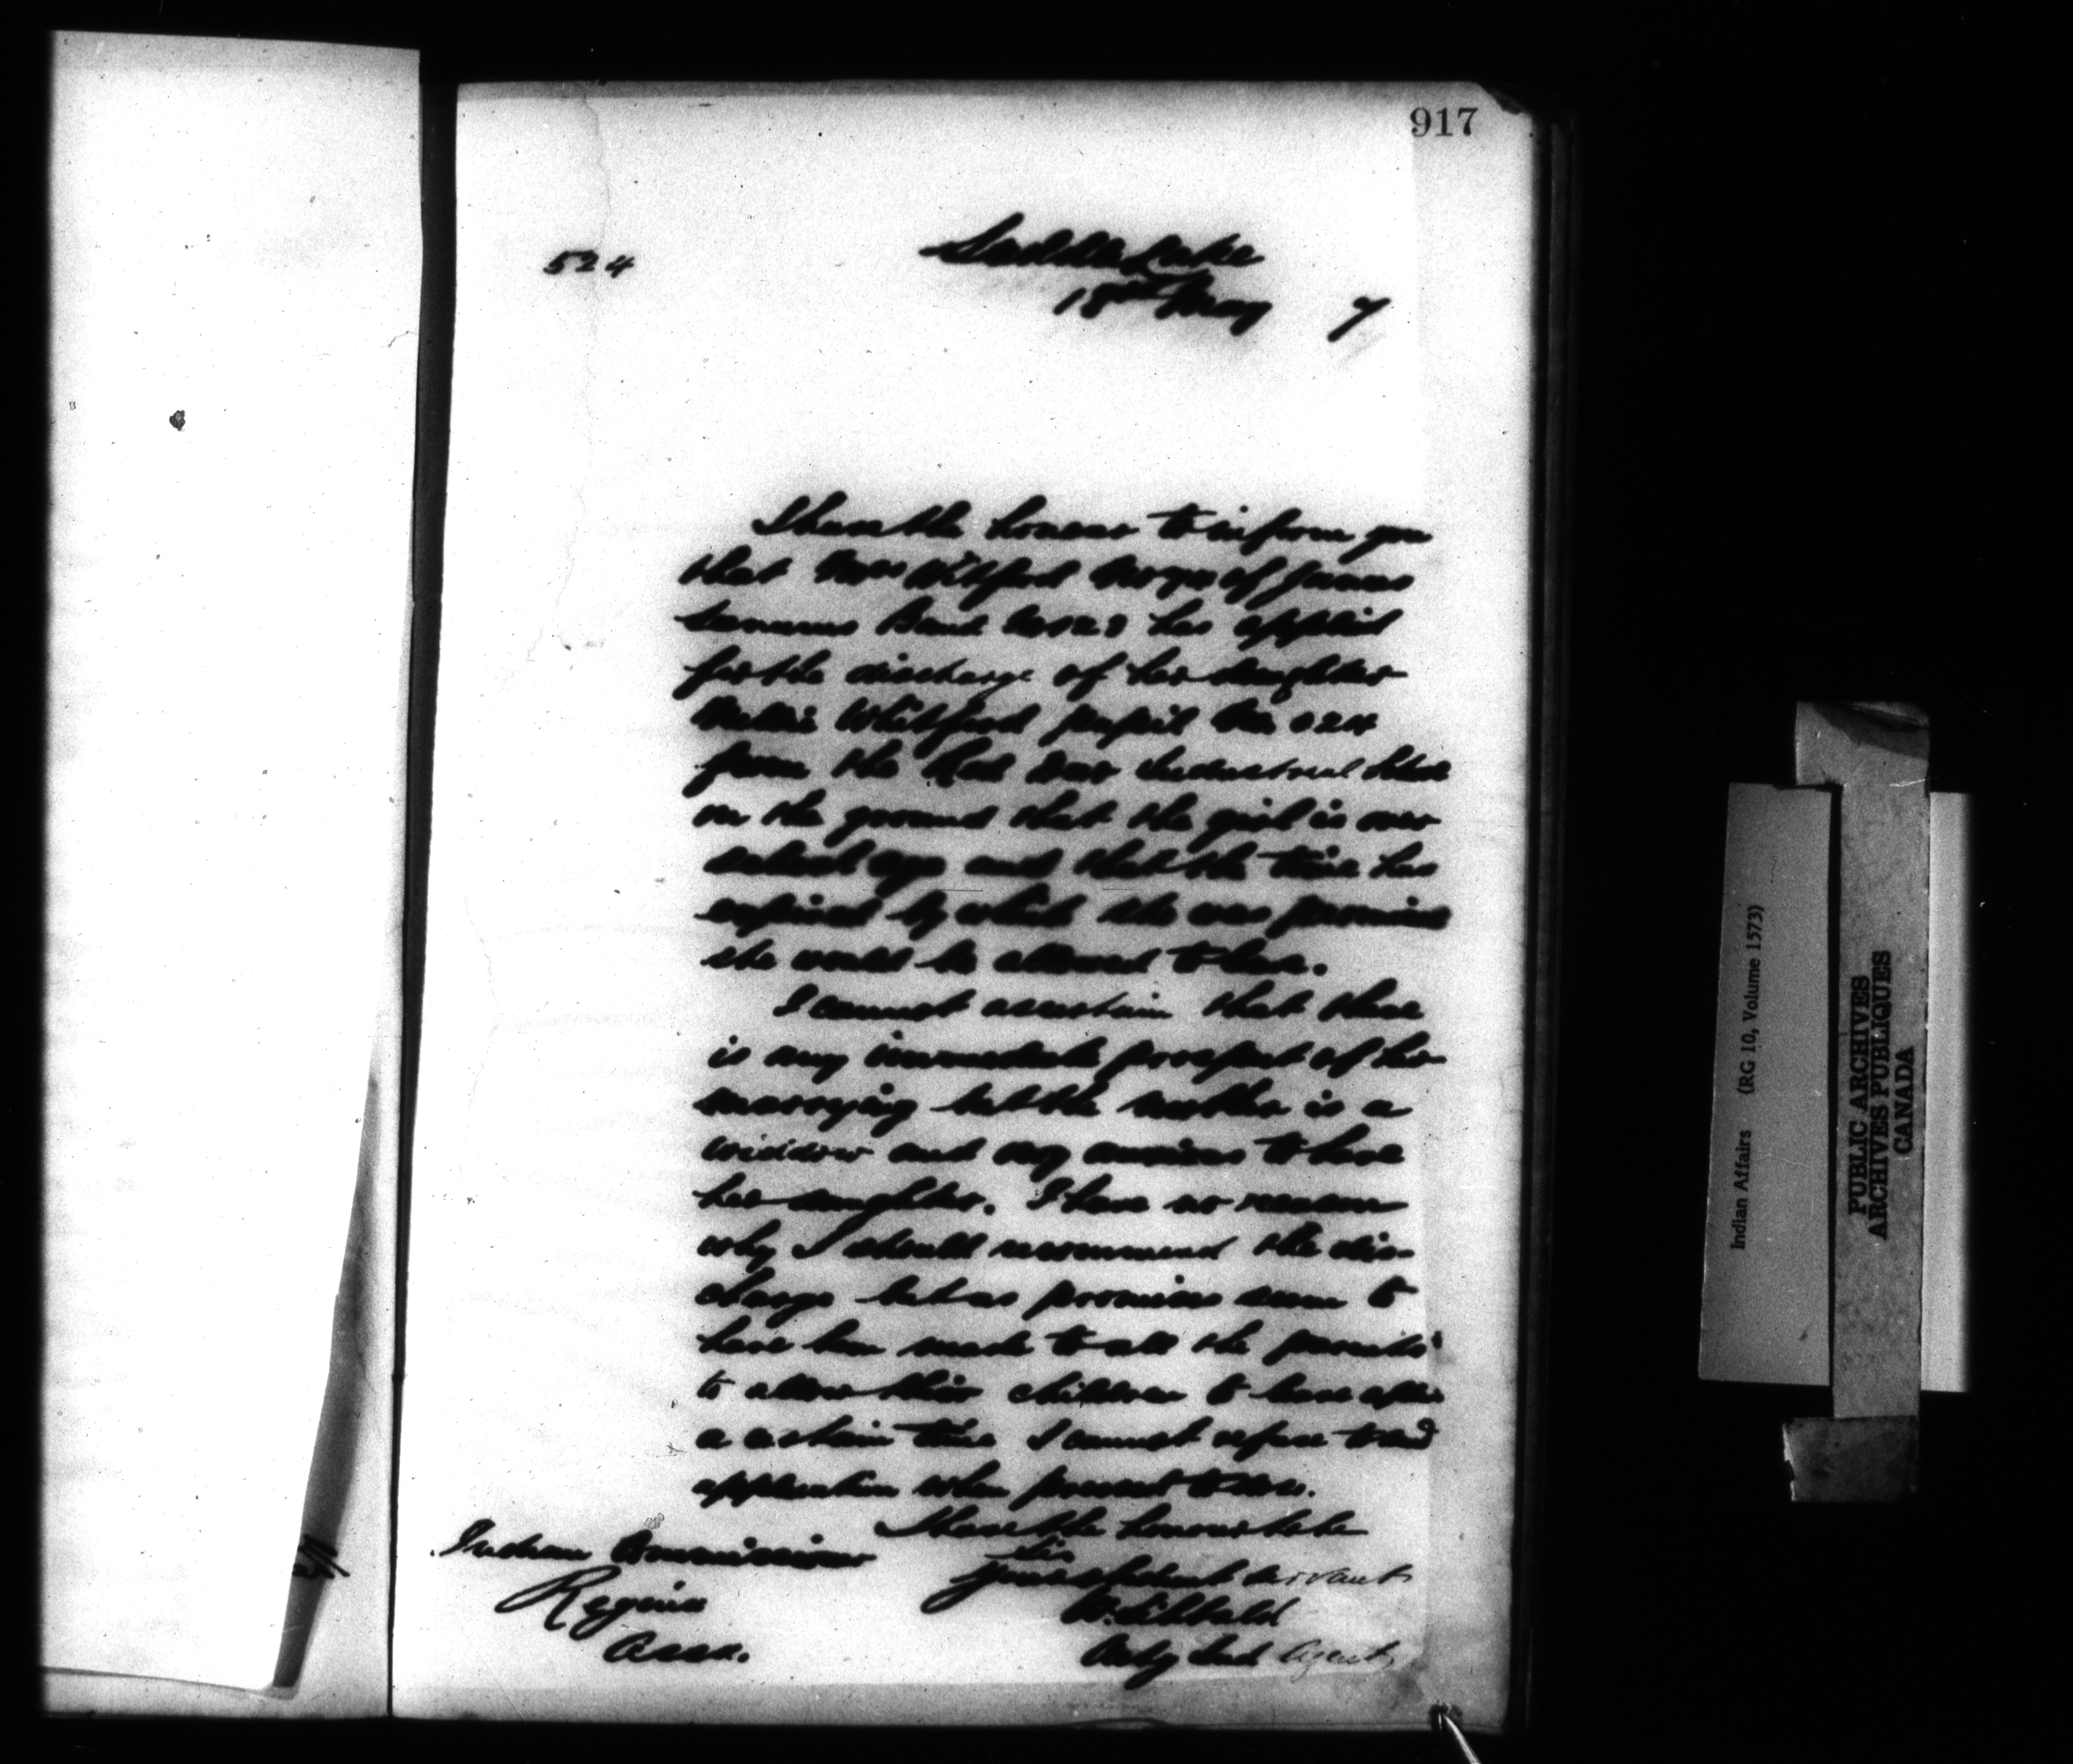 917
524
Saddle Lake
18th May 7
I have the honour to inform you
that Mrs Whitford No 70 of James
Senums Band No 128 has applied
for the discharge of her daughter
Nellie Whitford pupil No. 024
from the Red Deer Industrial School
on the ground that the girl is over
school age and that the time has
expired by which she was promised
she would be allowed to leave.
I cannot ascertain that there
is any immediate prospect of her
marrying but the mother is a
widdow and very anxious to have
her daughter. I have no reason
why I should recommend the dis-
charge but as promises seem to
have been made to all the parents
to allow their children to leave after
a certain time I cannot refuse to
application when present to me.
I have the honour to be
Sir
Your obedient servant
W. Sibbald
Actg Ind Agent
Indian Commissioner
Regina
Assa.
Indian Affairs (RG 10, Volume 1573)
PUBLIC ARCHIVES
ARCHIVES PUBLIQUES
CANADA